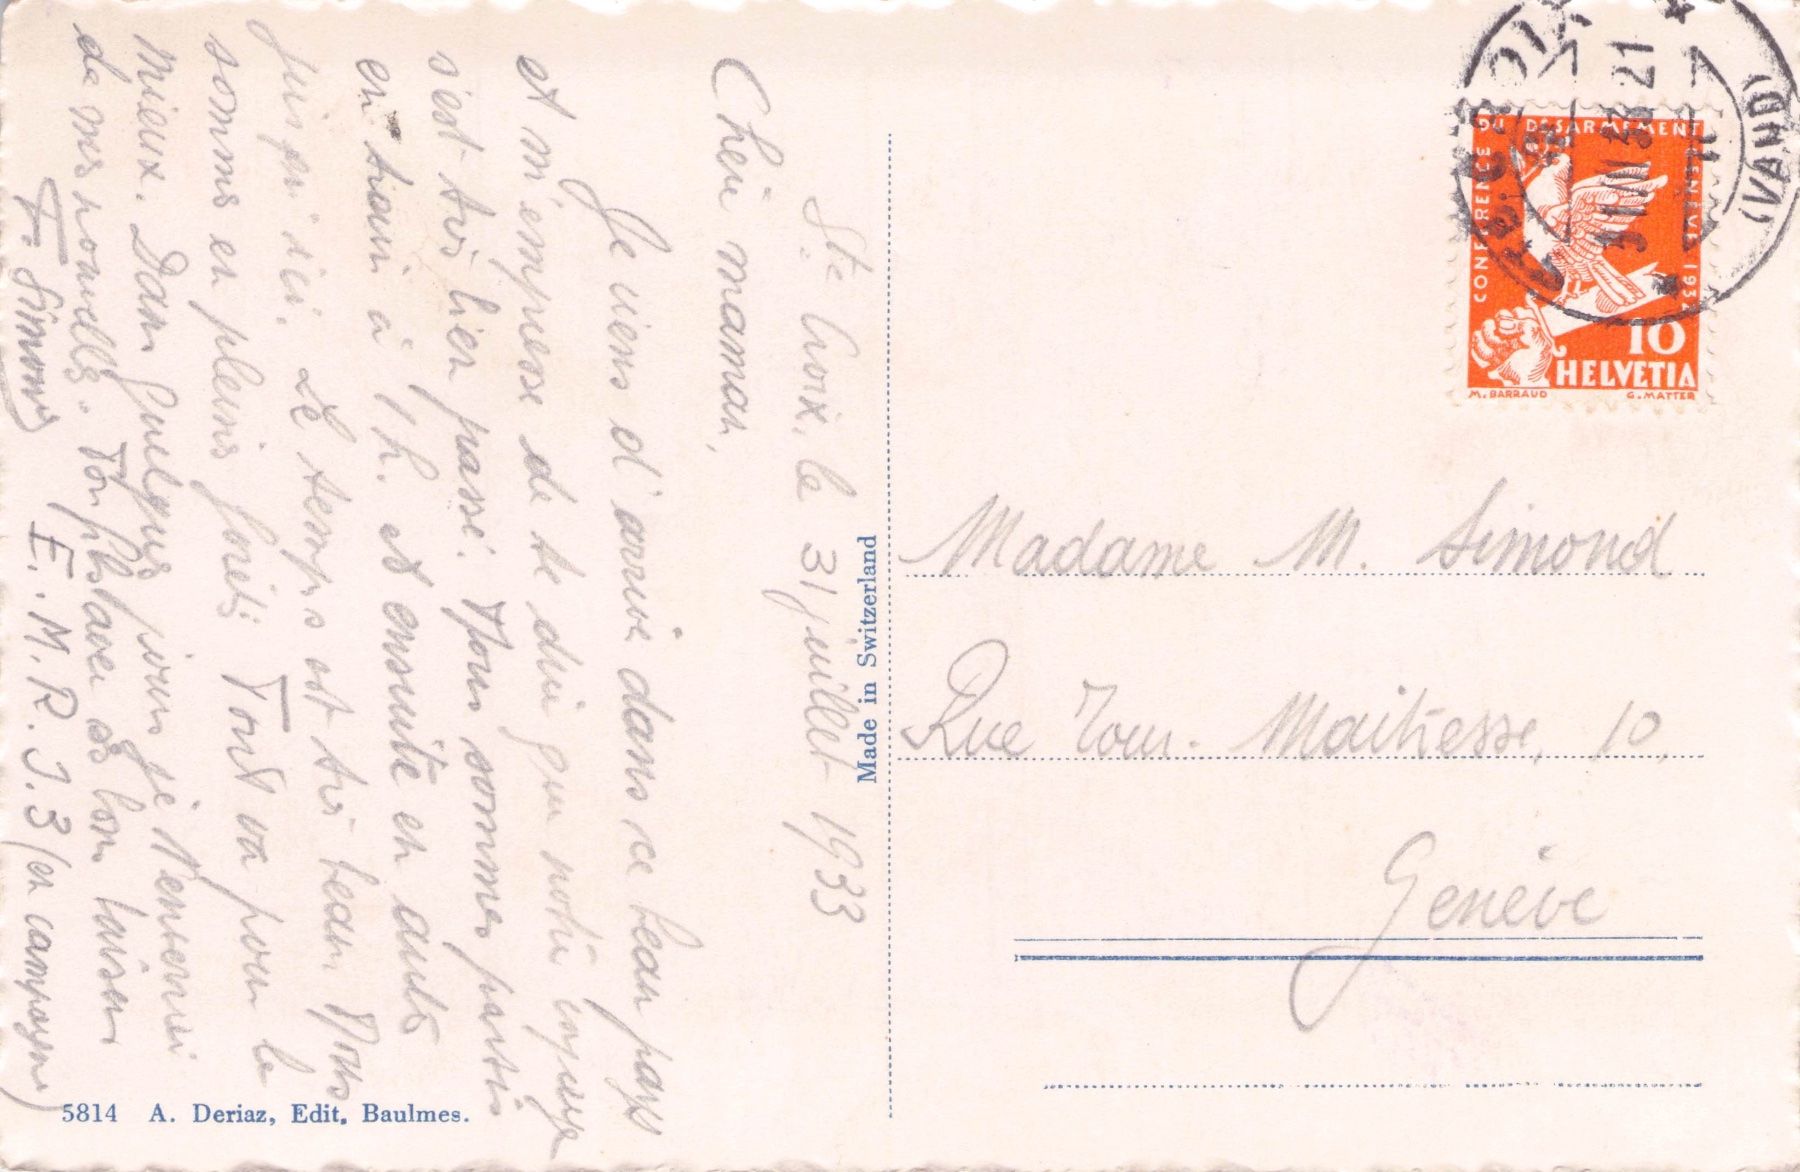 Ste Croix, le 31 juillet 1933
Chère maman,
Je viens d'arriver dans ce beau pays
et m'empresse de te dire que notre voyage
s'est très bien passé. Nous sommes partis
en train à 1 h. et ensuite en auto
jusqu'ici. Le temps est très beau. Nous
sommes en pleins forêts. Tout va pour le
mieux. Dans quelques jours je t'enverrai
de mes nouvelles. Ton fils avec ses bons baisers
F. Simond
E.M.R.I.3 (en campagne)
5814 A. Deriaz, Edit. Baulmes.
Made in Switzerland
Madame M. Simond
Rue Tour-Maîtresse, 10,
Genève
CONFÉRENCE DU DÉSARMEMENT GENÈVE 1932
10
HELVETIA
M. BARRAUD G. MATTER
CROIX
(VAUD)